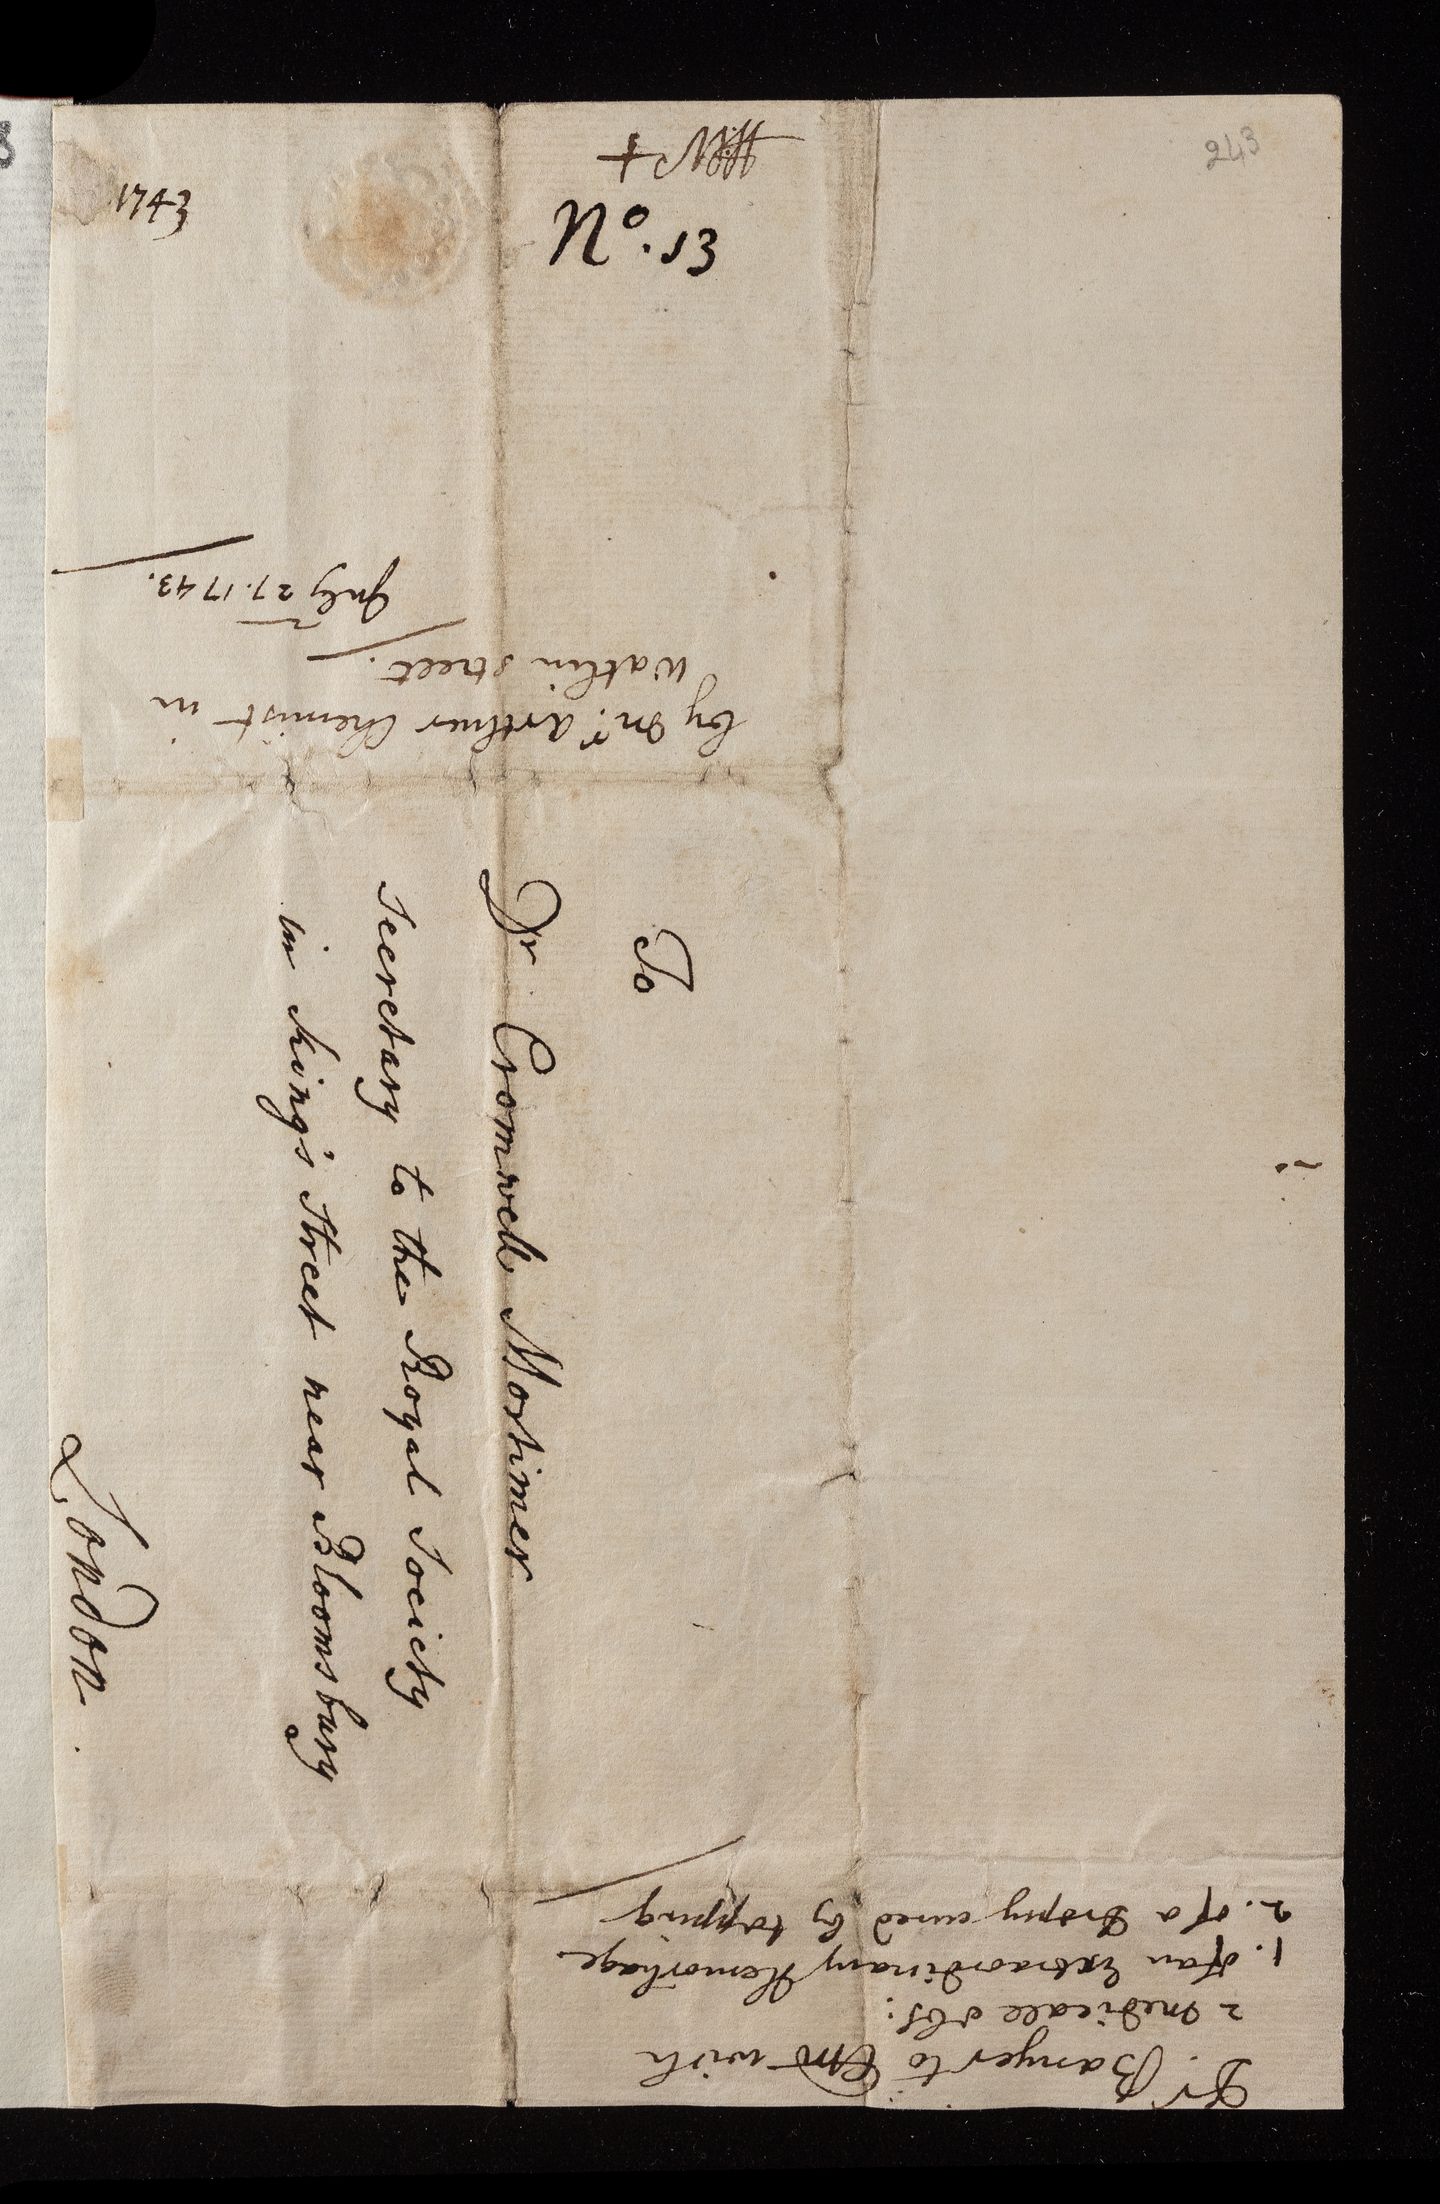 243
1743
No. 13
To
Dr Cromwell Mortimer
Secretary to the Royal Society
in King's Street near Bloomsbury
London
Dr Banyer to CM with
2 medicall obs:
1. of an Extraordinary Hemorhage
2. of a Dropsy cured by tapping
by Mr. Arthur Chemist in
Watlin street.
July 27. 1743.